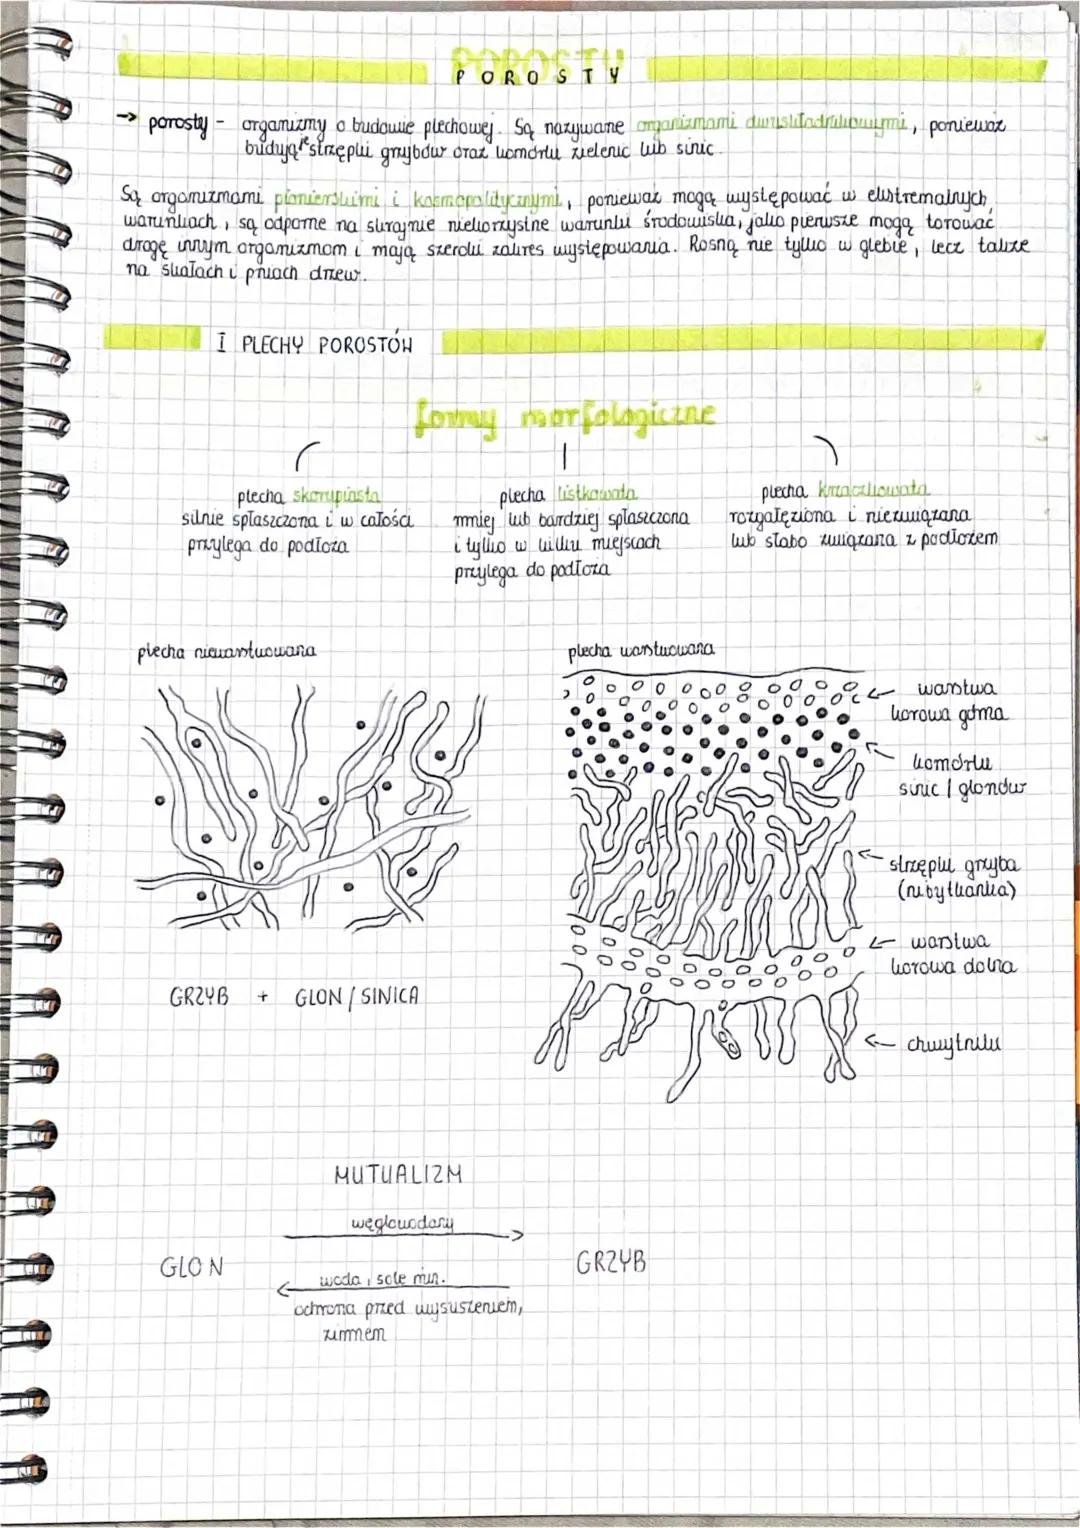 POROSTY
→ porosty - organizmy o budowie plechowej. Są nazywane organizmami dwuskładnikowymi, ponieważ
budują je strzępki grzybów oraz komórki zielenic lub sinic.
Są organizmami pionierskimi i kosmopolitycznymi, ponieważ mogą występować w ekstremalnych
warunkach, są odporne na skrajnie niekorzystne warunki środowiska, jako pierwsze mogą torować
drogę innym organizmom i mają szeroki zakres występowania. Rosną nie tylko w glebie, lecz także
na skałach i pniach drzew.
I PLECHY POROSTÓW
formy morfologiczne
plecha skorupiasta
silnie spłaszczona i w całości
przylega do podłoża
plecha listkowata
mniej lub bardziej spłaszczona
i tylko w kilku miejscach
przylega do podłoża
plecha krzaczkowata
rozgałęziona i niezwiązana
lub słabo związana z podłożem
plecha niewarstwowana
GRZYB + GLON / SINICA
plecha warstwowana
warstwa
korowa górna
komórki
sinic / glonów
strzępki grzyba
(nibytkanka)
warstwa
korowa dolna
chwytniki
MUTUALIZM
węglowodany
GLON
GRZYB
woda, sole min.
ochrona przed wysuszeniem,
zimnem